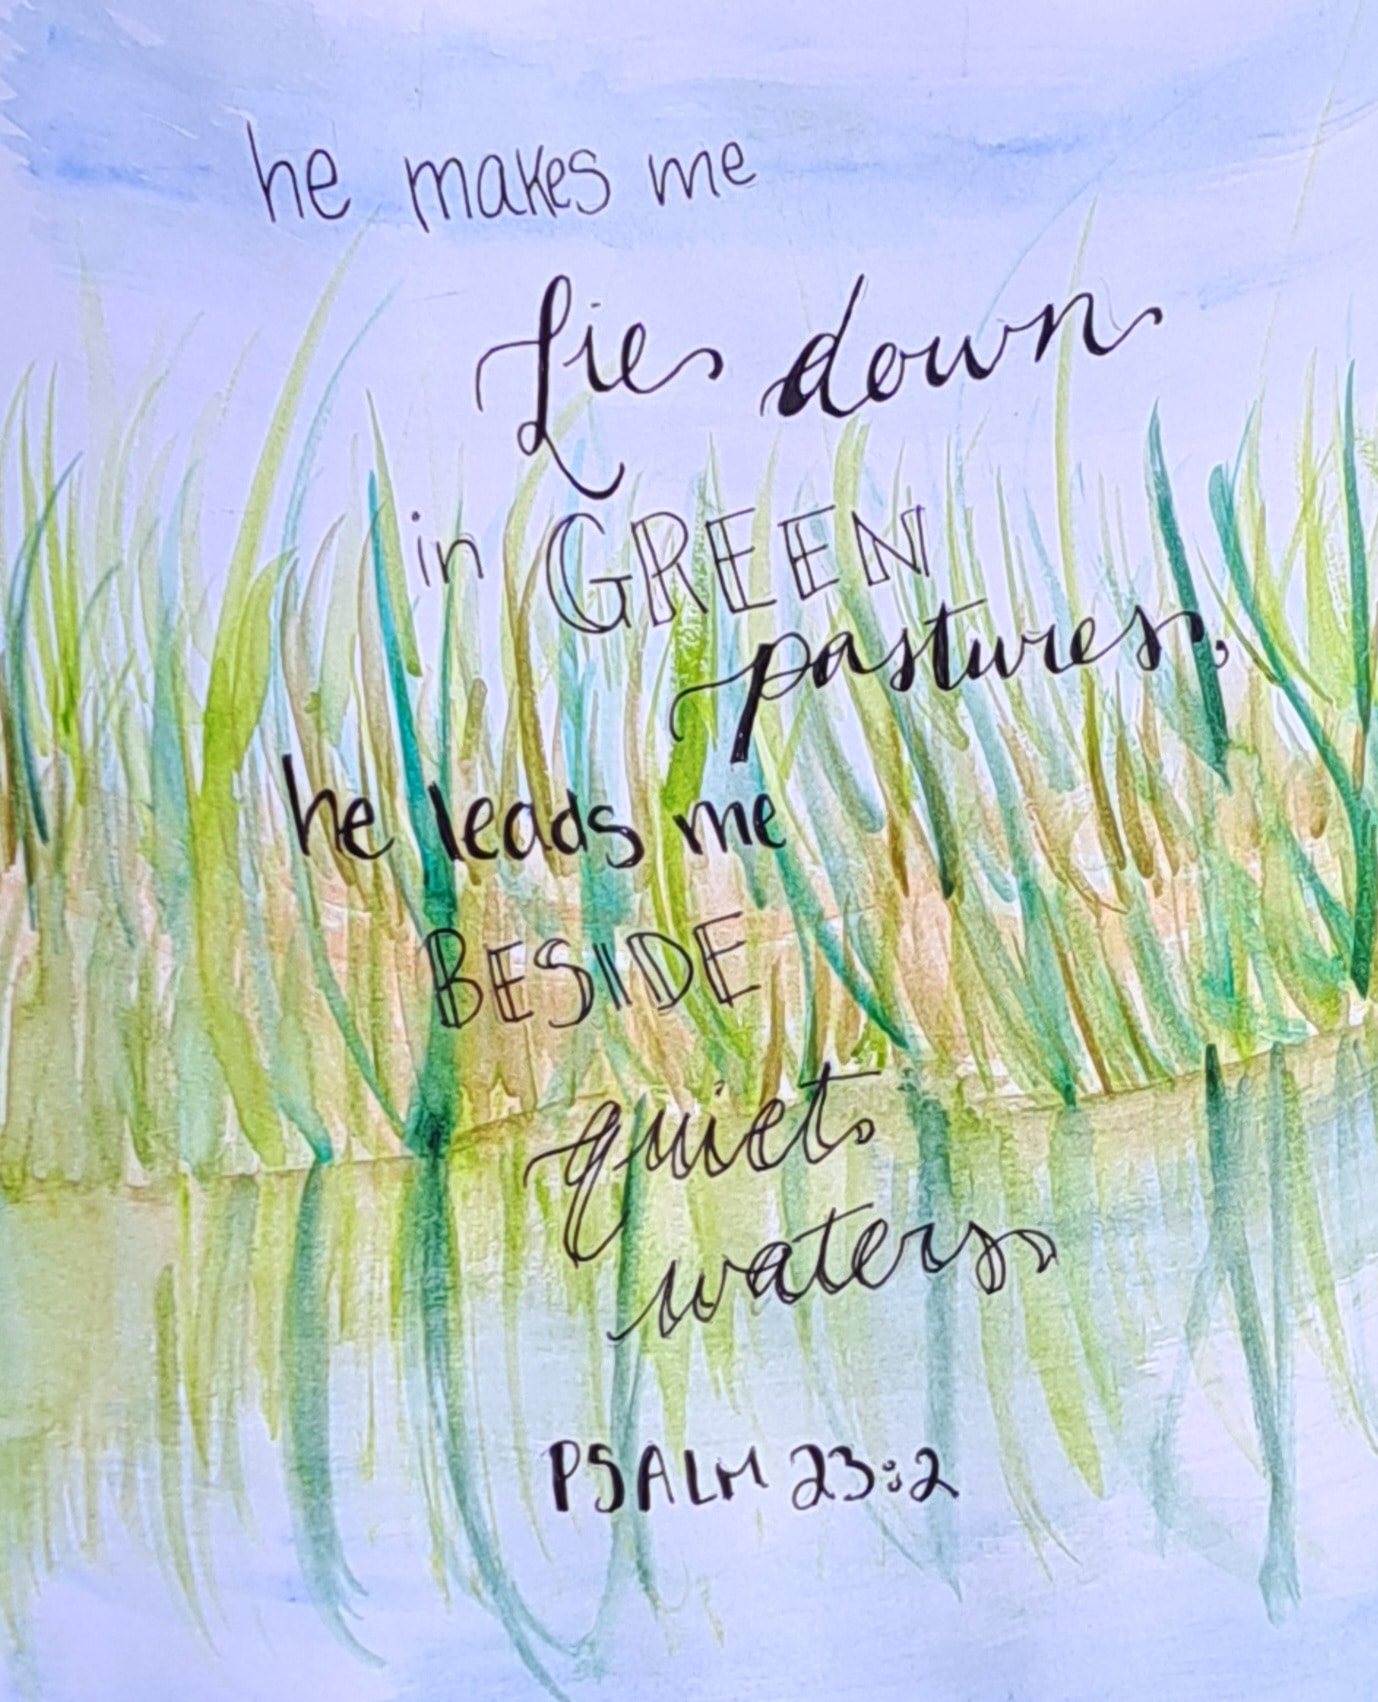 he makes me
Lie down
in GREEN
pastures,
he leads me
BESIDE
quiet
waters
PSALM 23:2